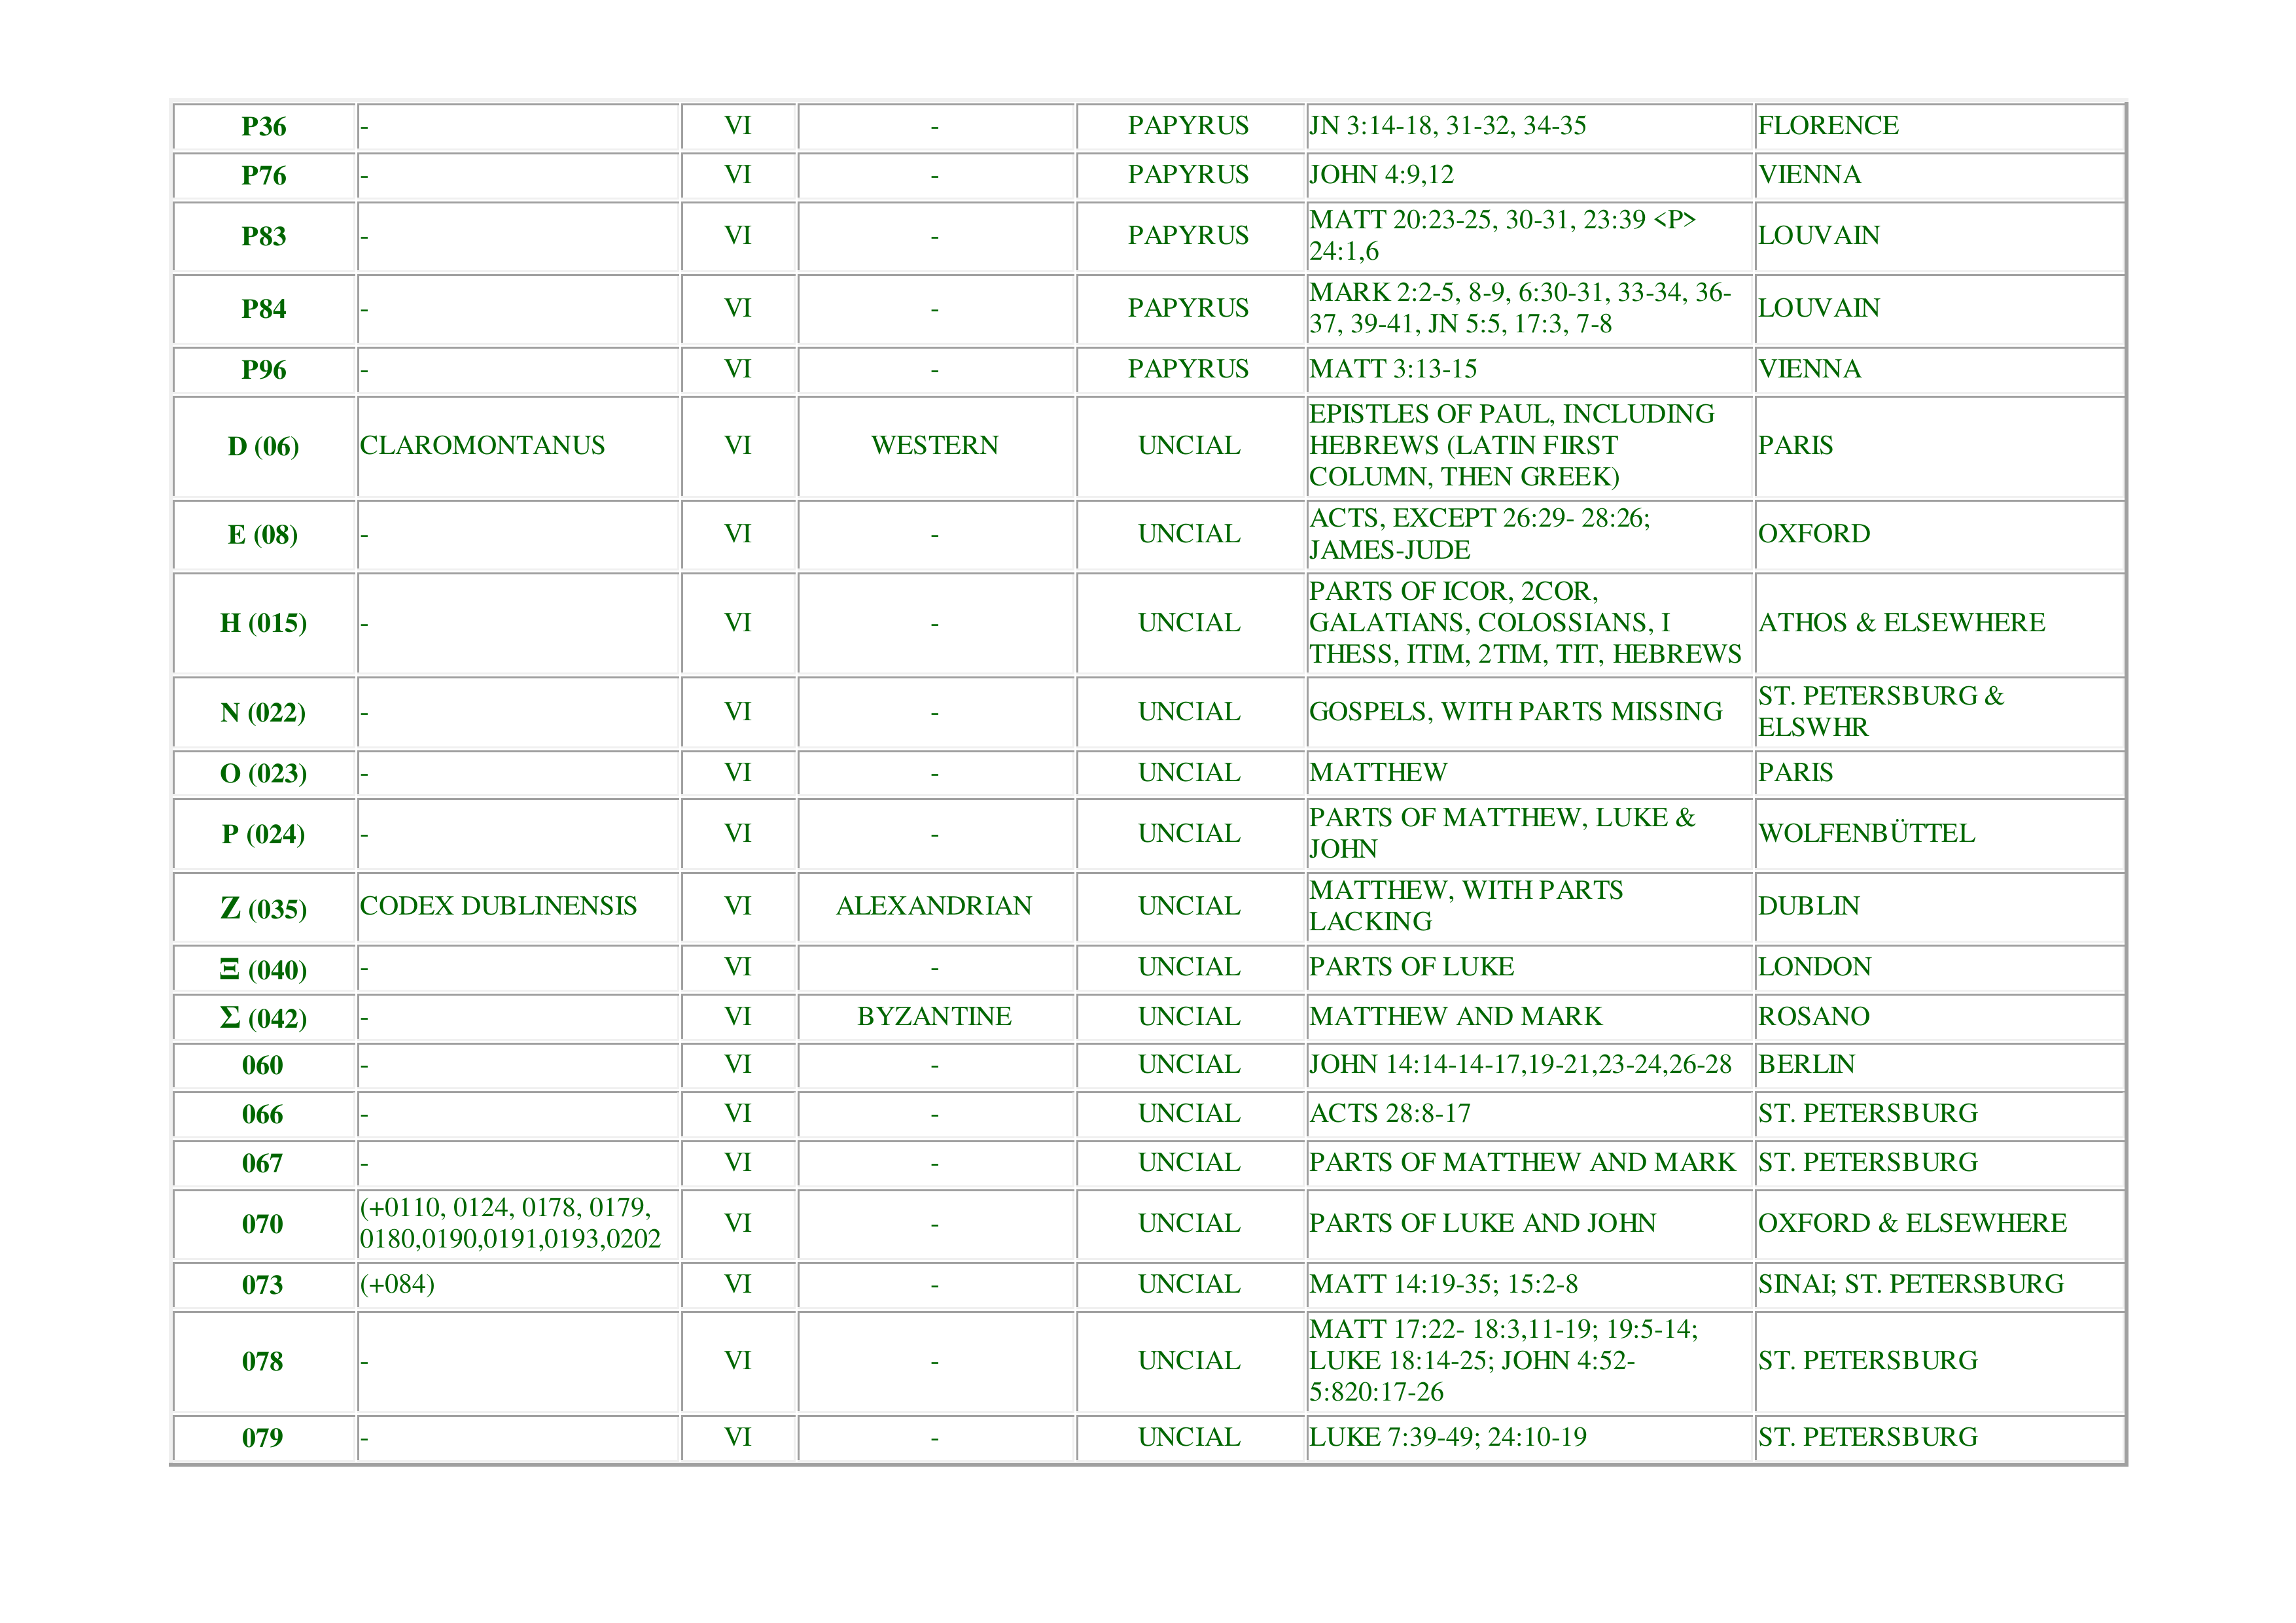 P36 - VI - PAPYRUS JN 3:14-18, 31-32, 34-35 FLORENCE
P76 - VI - PAPYRUS JOHN 4:9,12 VIENNA
P83 - VI - PAPYRUS MATT 20:23-25, 30-31, 23:39 <P>
24:1,6 LOUVAIN
P84 - VI - PAPYRUS MARK 2:2-5, 8-9, 6:30-31, 33-34, 36-
37, 39-41, JN 5:5, 17:3, 7-8 LOUVAIN
P96 - VI - PAPYRUS MATT 3:13-15 VIENNA
D (06) CLAROMONTANUS VI WESTERN UNCIAL EPISTLES OF PAUL, INCLUDING
HEBREWS (LATIN FIRST
COLUMN, THEN GREEK) PARIS
E (08) - VI - UNCIAL ACTS, EXCEPT 26:29- 28:26;
JAMES-JUDE OXFORD
H (015) - VI - UNCIAL PARTS OF ICOR, 2COR,
GALATIANS, COLOSSIANS, I
THESS, ITIM, 2TIM, TIT, HEBREWS ATHOS & ELSEWHERE
N (022) - VI - UNCIAL GOSPELS, WITH PARTS MISSING ST. PETERSBURG &
ELSWHR
O (023) - VI - UNCIAL MATTHEW PARIS
P (024) - VI - UNCIAL PARTS OF MATTHEW, LUKE &
JOHN WOLFENBÜTTEL
Z (035) CODEX DUBLINENSIS VI ALEXANDRIAN UNCIAL MATTHEW, WITH PARTS
LACKING DUBLIN
Ξ (040) - VI - UNCIAL PARTS OF LUKE LONDON
Σ (042) - VI BYZANTINE UNCIAL MATTHEW AND MARK ROSANO
060 - VI - UNCIAL JOHN 14:14-14-17,19-21,23-24,26-28 BERLIN
066 - VI - UNCIAL ACTS 28:8-17 ST. PETERSBURG
067 - VI - UNCIAL PARTS OF MATTHEW AND MARK ST. PETERSBURG
070 (+0110, 0124, 0178, 0179,
0180,0190,0191,0193,0202 VI - UNCIAL PARTS OF LUKE AND JOHN OXFORD & ELSEWHERE
073 (+084) VI - UNCIAL MATT 14:19-35; 15:2-8 SINAI; ST. PETERSBURG
078 - VI - UNCIAL MATT 17:22- 18:3,11-19; 19:5-14;
LUKE 18:14-25; JOHN 4:52-
5:820:17-26 ST. PETERSBURG
079 - VI - UNCIAL LUKE 7:39-49; 24:10-19 ST. PETERSBURG